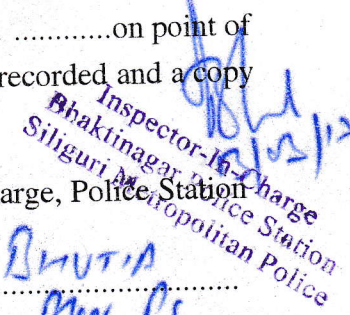 ............on point of
recorded and a copy
Inspector-In-Charge
Bhaktinagar Police Station
Siliguri Metropolitan Police
arge, Police Station
BHUTIA
........................................